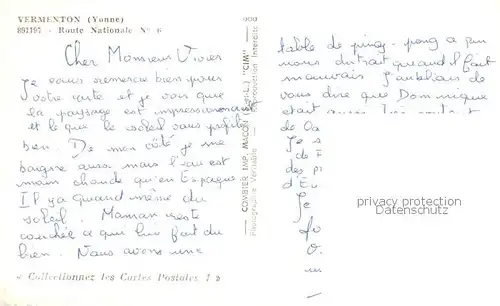 VERMENTON (Yonne)
891191 - Route Nationale N° 6
Cher Monsieur Vivier
Je vous remercie bien pour
votre carte et je vois que
la paysage est impressionnant
et le que le soleil vous profitez
bien. De mon côté je me
baigne aussi mais l'eau est
moin chaude qu'en Espagne
Il y a quand même du
soleil. Maman reste
couchée ce qui lui fait du
bien. Nous avons une
« Collectionnez les Cartes Postales ! »
COMBIER IMP. MACON (S.-L.) "CIM"
Photographie Véritable - Reproduction Interdite
table de ping-pong a qui
nous distrait quand il fait
mauvais. J'oubliais de
vous dire que Dominique
etait aussi
de
Je s
de
des p
d'Eu
Je
privacy protection
Datenschutz